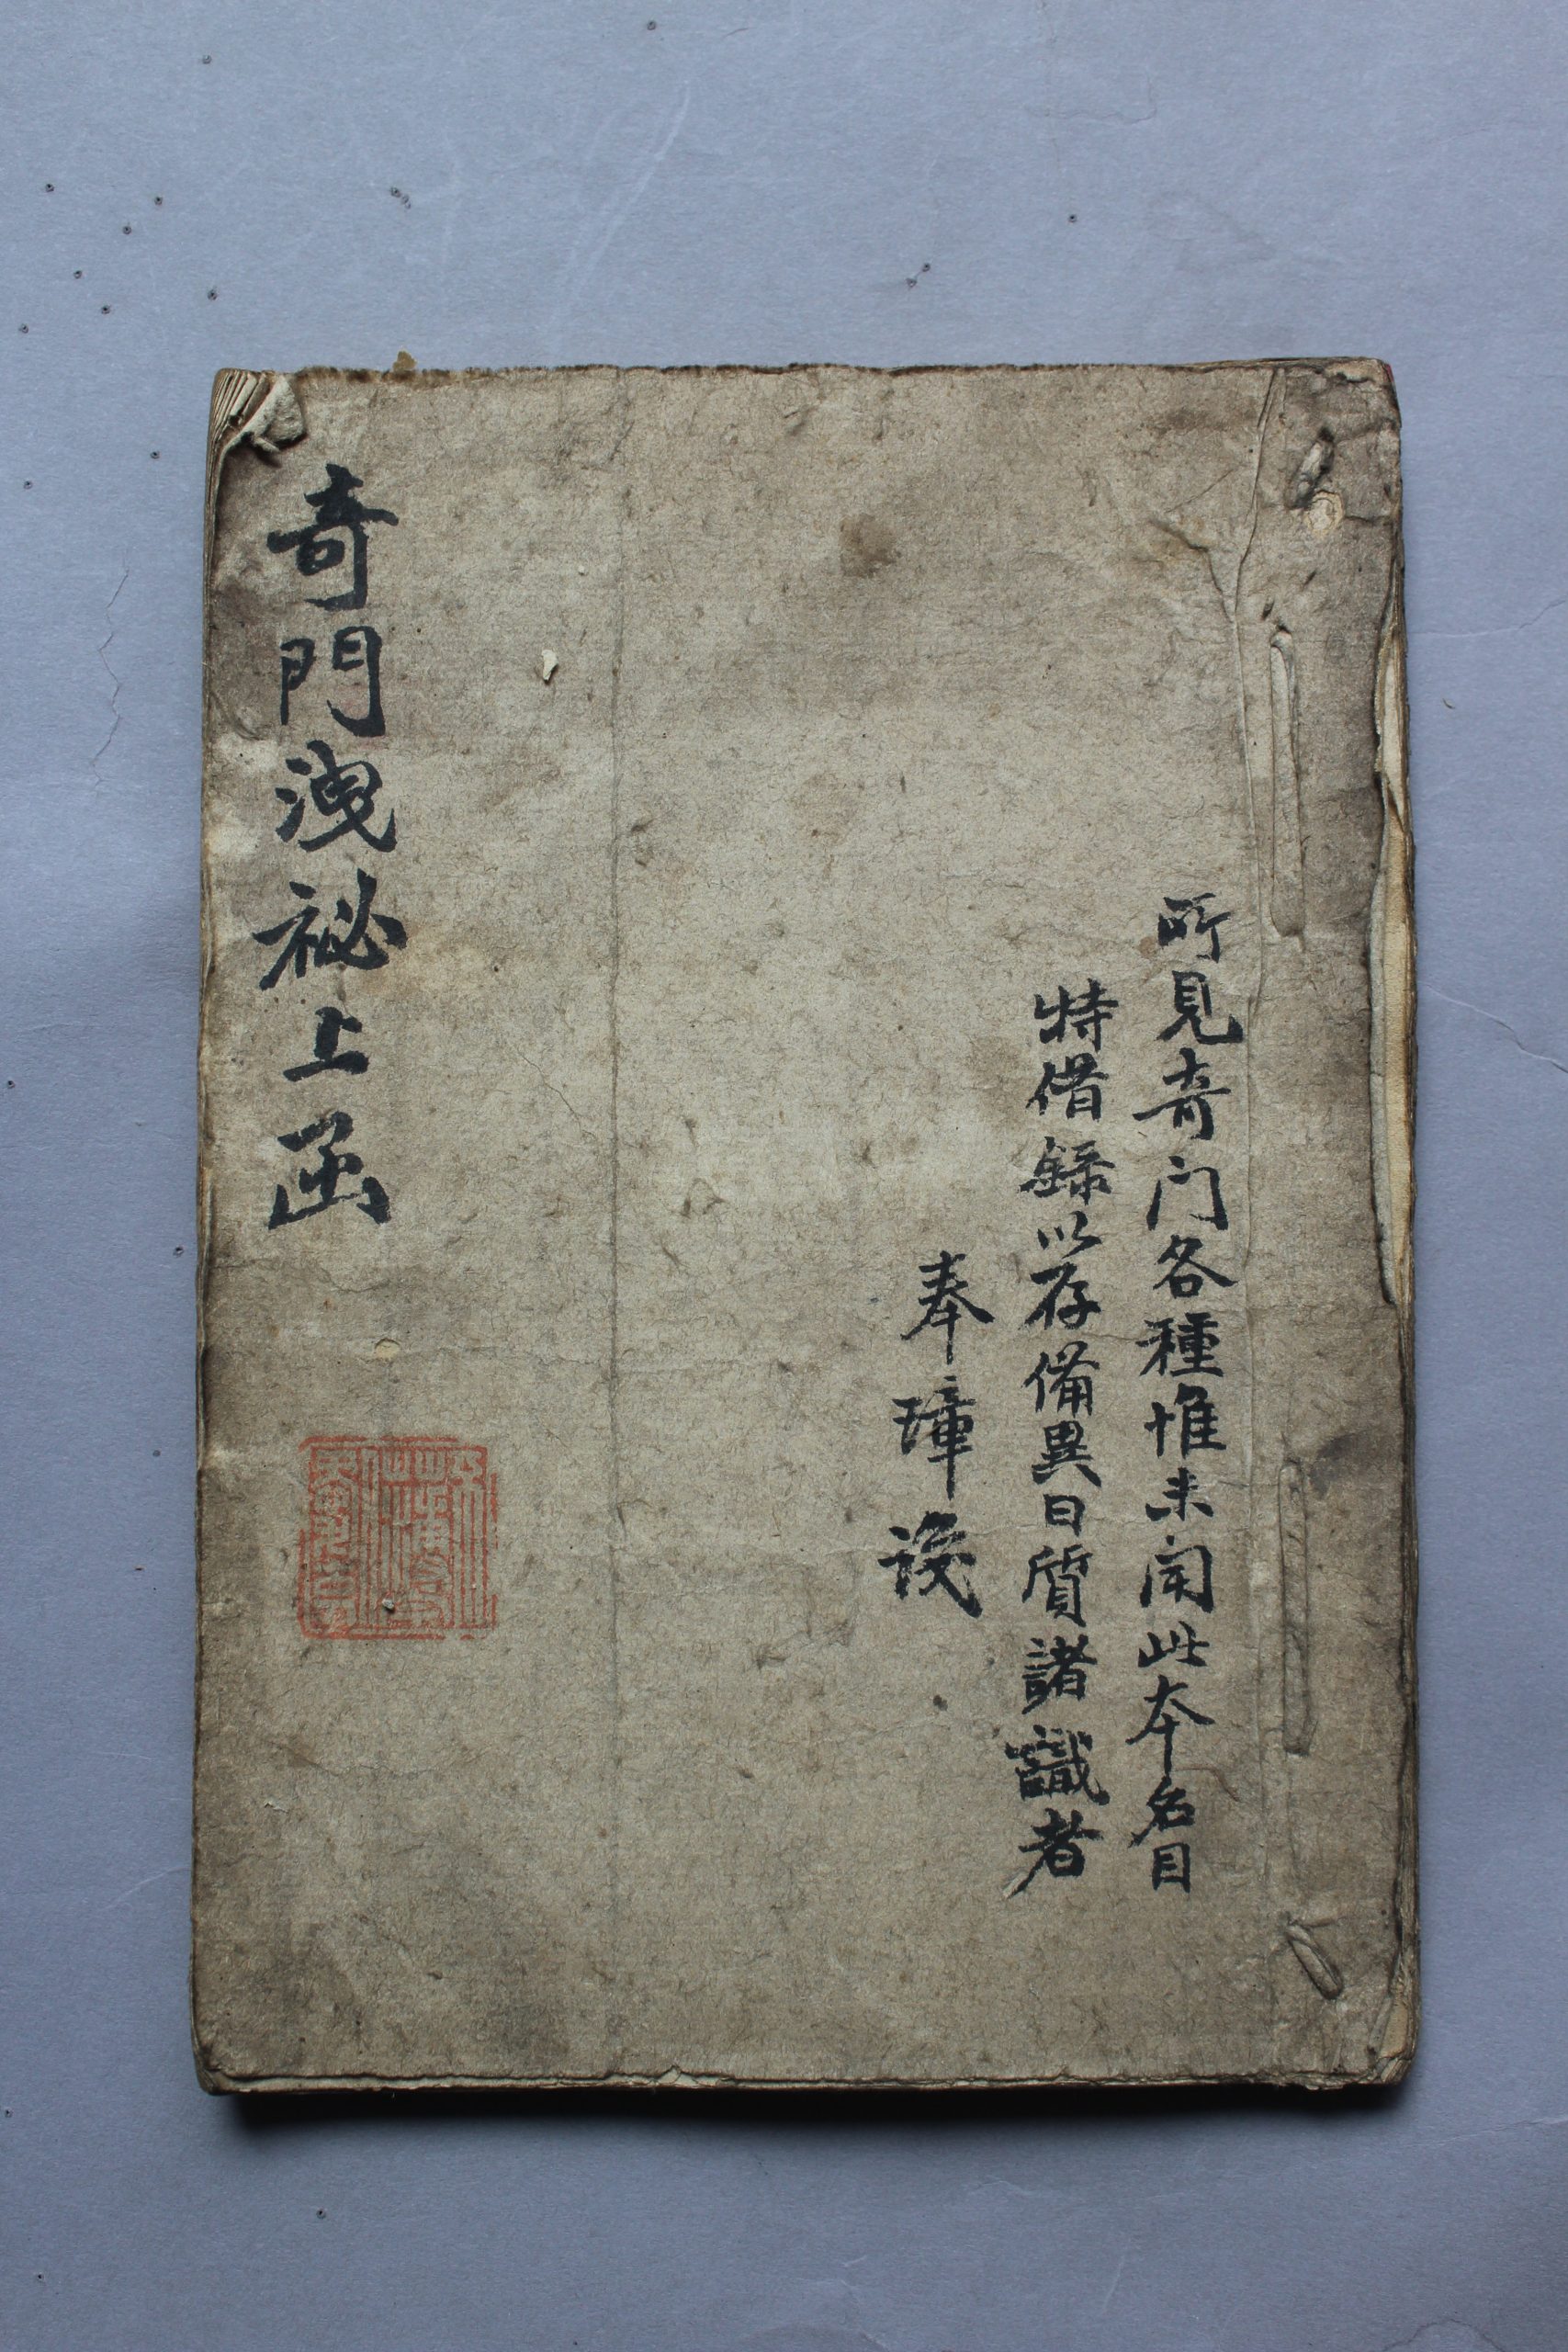 所見奇门各種惟未闻此本名目
特借錄以存備異日質諸識者
奉璋
奇門洩祕上函